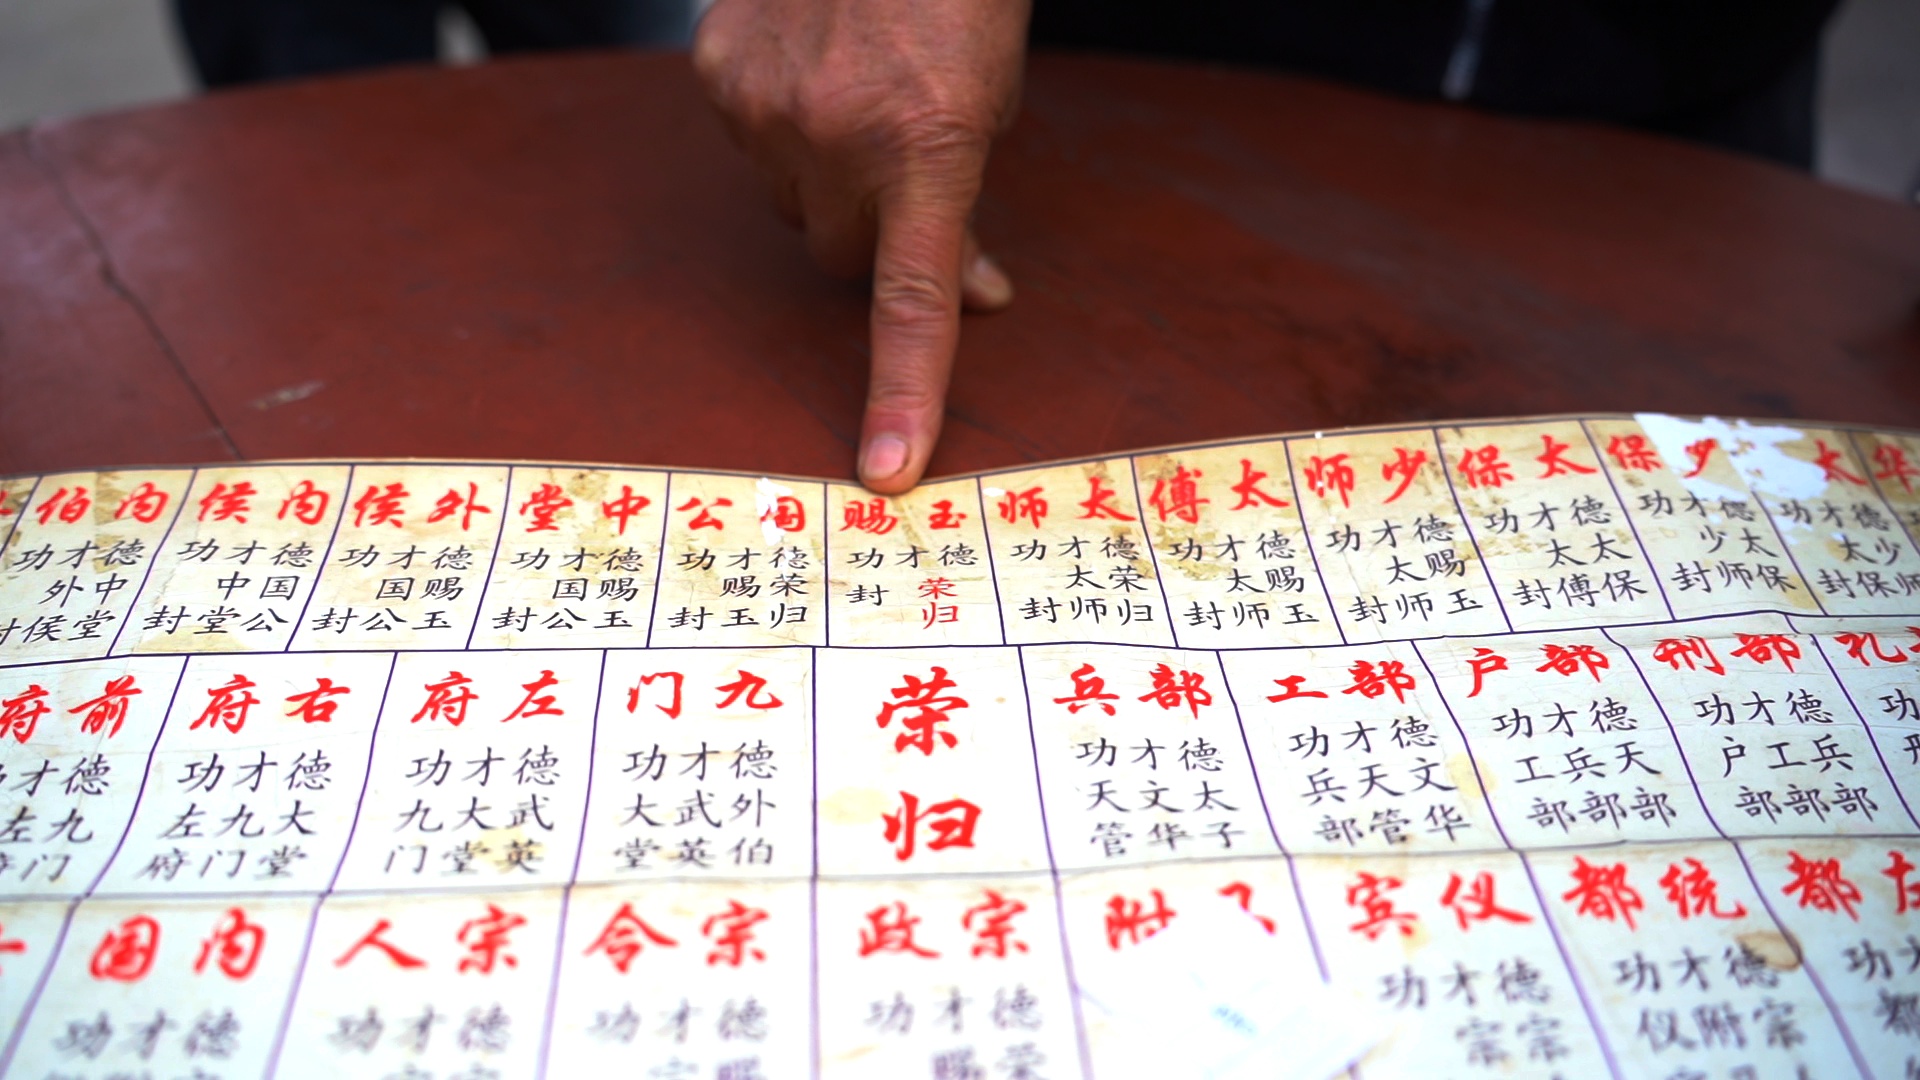 内伯
德中堂
才外侯
功封
内侯
德国公
才中堂
功封
外侯
德赐玉
才国公
功封
中堂
德赐玉
才国公
功封
国公
德荣归
才赐玉
功封
玉赐
德荣归
才
功封
太师
德荣归
才太师
功封
太傅
德赐玉
才太师
功封
少师
德赐玉
才太师
功封
太保
德太保
才太傅
功封
少保
德太保
才少师
功封
太
德少师
才太保
功封
华
前府
德九门
才左府
右府
德大堂
才九门
功左府
左府
德武英
才大堂
功九门
九门
德外伯
才武英
功大堂
荣归
兵部
德太子
才文华
功天管
工部
德文华
才天管
功兵部
户部
德天部
才兵部
功工部
刑部
德兵部
才工部
功户部
礼
功
内国
德
才
功
宗人
德
才
功
宗令
德赐
才宗
功
宗政
德荣
才赐
功
附
仪宾
德宗
才宗
功
统都
德宗
才附
功仪
左都
才都
功